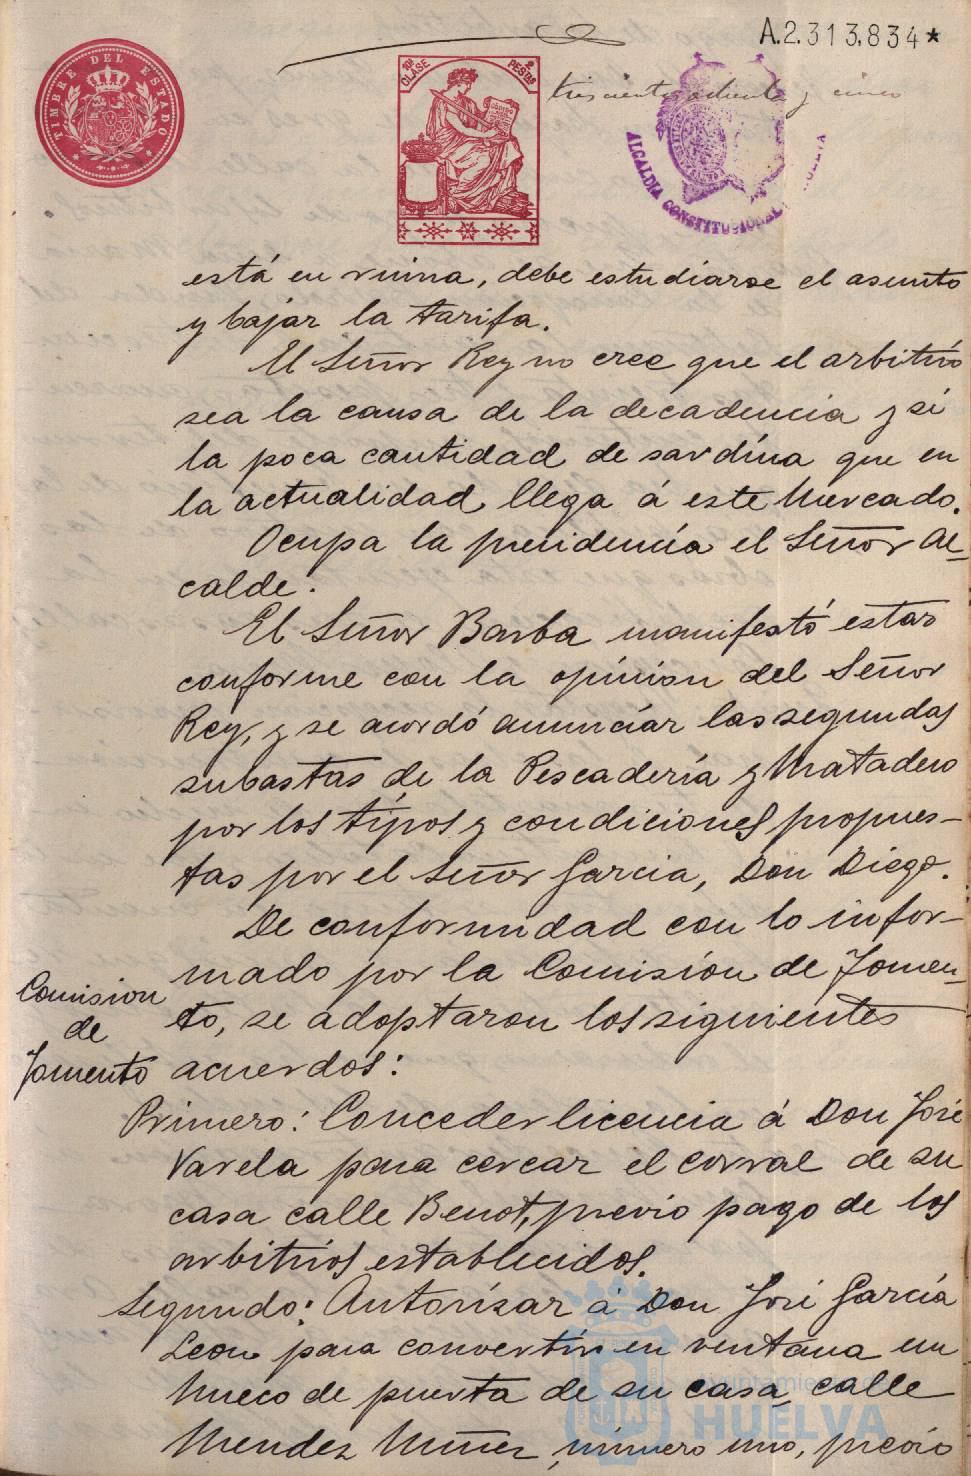 A.2.313.834★
TIMBRE DEL ESTADO
CLASE
PESTAS
trescientos ochenta y cinco
ALCALDIA CONSTITUCIONAL
está en ruina, debe estudiarse el asunto
y bajar la tarifa.
El Señor Rey no cree que el arbitrio
sea la causa de la decadencia y si
la poca cantidad de sardina que en
la actualidad llega á este Mercado.
Ocupa la presidencia el Señor Al=
calde.
El Señor Barba manifestó estar
conforme con la opinion del Señor
Rey, y se acordó anunciar las segundas
subastas de la Pescadería y Matadero
por los tipos y condiciones propues-
tas por el Señor Garcia, Don Diego.
De conformidad con lo infor-
mado por la Comisión de Fomen-
to, se adoptaron los siguientes
acuerdos:
Comision
de
Fomento
Primero: Conceder licencia á Don José
Varela para cercar el corral de su
casa calle Benot, previo pago de los
arbitrios establecidos.
Segundo: Autorizar á Don José García
Leon para convertir en ventana un
hueco de puerta de su casa, calle
Mendez Nuñez, número uno, previo
Ayuntamiento de
HUELVA